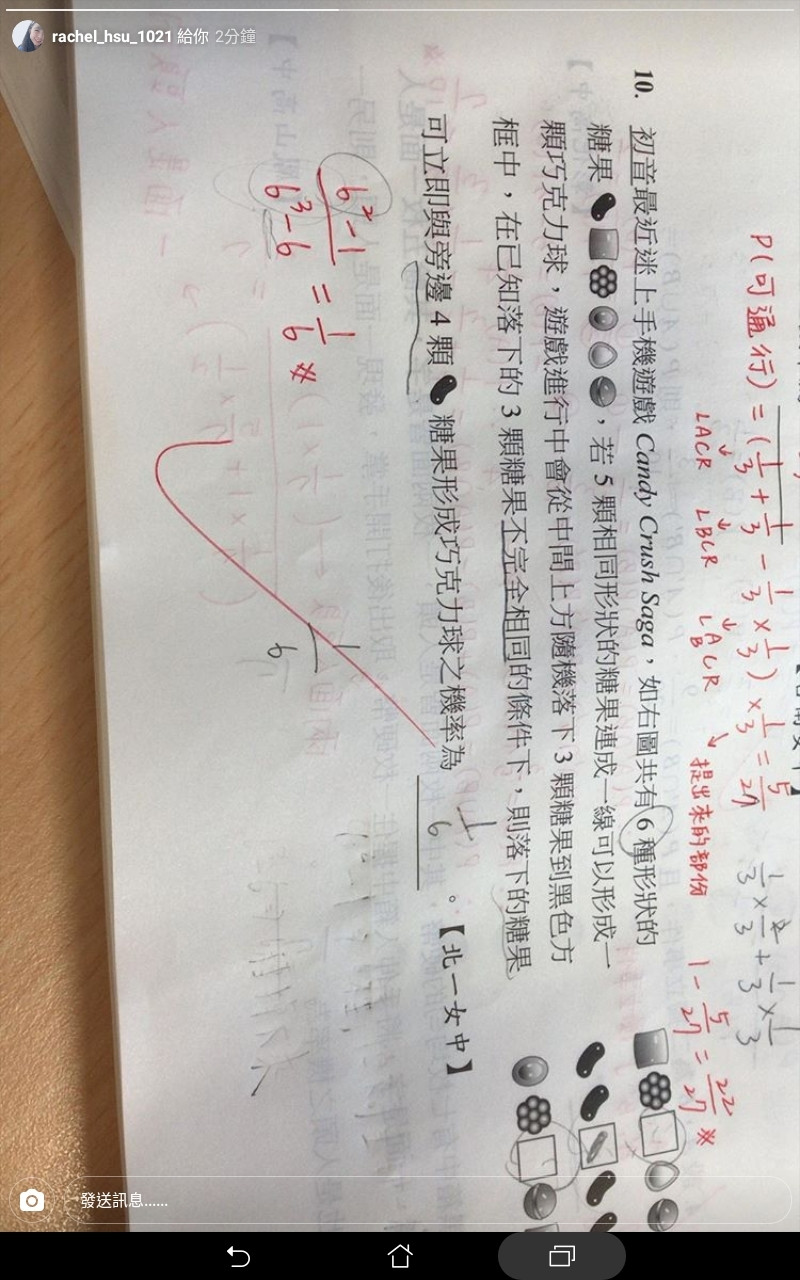 rachel_hsu_1021 給你 2分鐘
P(可通行) = (1/3 + 1/3 − 1/3 × 1/3) × 1/3 = 5/27
LACR LBCR L A/B CR 提出來的部份
1 − 5/27 = 22/27 ※
10. 初音最近迷上手機遊戲 Candy Crush Saga，如右圖共有 6 種形狀的
糖果，若 5 顆相同形狀的糖果連成一線可以形成一
顆巧克力球，遊戲進行中會從中間上方隨機落下 3 顆糖果到黑色方
框中，在已知落下的 3 顆糖果不完全相同的條件下，則落下的糖果
可立即與旁邊 4 顆 糖果形成巧克力球之機率為 1/6 。【北一女中】
6²−1 / 6³−6 = 1/6 ※
1/6
發送訊息......